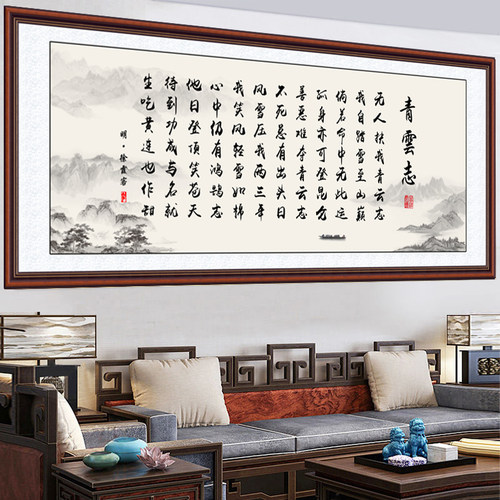 青雲志
无人扶我青云志
我自踏雪至山巅
倘若命中无此运
孤身亦可登昆仑
善恶难夺青云志
不死总有出头日
风雪压我两三年
我笑风轻雪如棉
心中仍有鸿鹄志
他日登顶笑苍天
待到功成与名就
生吃黄连也作甜
明·徐霞客